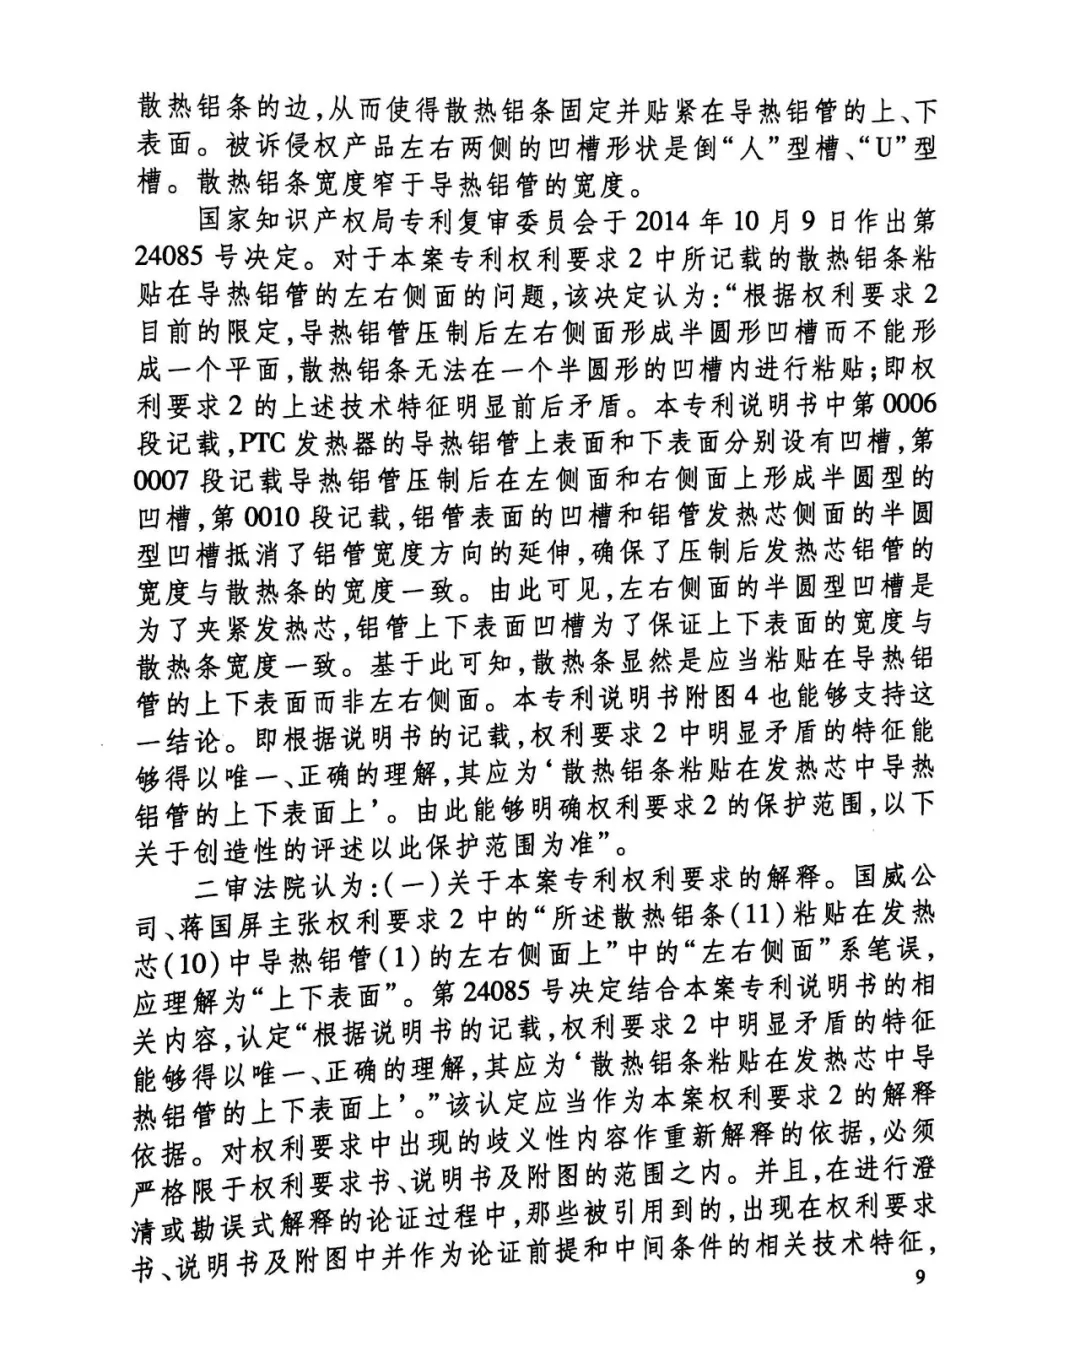 散热铝条的边,从而使得散热铝条固定并贴紧在导热铝管的上、下
表面。被诉侵权产品左右两侧的凹槽形状是倒“人”型槽、“U”型
槽。散热铝条宽度窄于导热铝管的宽度。
国家知识产权局专利复审委员会于 2014 年 10 月 9 日作出第
24085 号决定。对于本案专利权利要求 2 中所记载的散热铝条粘
贴在导热铝管的左右侧面的问题,该决定认为:“根据权利要求 2
目前的限定,导热铝管压制后左右侧面形成半圆形凹槽而不能形
成一个平面,散热铝条无法在一个半圆形的凹槽内进行粘贴;即权
利要求 2 的上述技术特征明显前后矛盾。本专利说明书中第 0006
段记载,PTC 发热器的导热铝管上表面和下表面分别设有凹槽,第
0007 段记载导热铝管压制后在左侧面和右侧面上形成半圆型的
凹槽,第 0010 段记载,铝管表面的凹槽和铝管发热芯侧面的半圆
型凹槽抵消了铝管宽度方向的延伸,确保了压制后发热芯铝管的
宽度与散热条的宽度一致。由此可见,左右侧面的半圆型凹槽是
为了夹紧发热芯,铝管上下表面凹槽为了保证上下表面的宽度与
散热条宽度一致。基于此可知,散热条显然是应当粘贴在导热铝
管的上下表面而非左右侧面。本专利说明书附图 4 也能够支持这
一结论。即根据说明书的记载,权利要求 2 中明显矛盾的特征能
够得以唯一、正确的理解,其应为‘散热铝条粘贴在发热芯中导热
铝管的上下表面上’。由此能够明确权利要求 2 的保护范围,以下
关于创造性的评述以此保护范围为准”。
二审法院认为:(一)关于本案专利权利要求的解释。国威公
司、蒋国屏主张权利要求 2 中的“所述散热铝条(11)粘贴在发热
芯(10)中导热铝管(1)的左右侧面上”中的“左右侧面”系笔误,
应理解为“上下表面”。第 24085 号决定结合本案专利说明书的相
关内容,认定“根据说明书的记载,权利要求 2 中明显矛盾的特征
能够得以唯一、正确的理解,其应为‘散热铝条粘贴在发热芯中导
热铝管的上下表面上’。”该认定应当作为本案权利要求 2 的解释
依据。对权利要求中出现的歧义性内容作重新解释的依据,必须
严格限于权利要求书、说明书及附图的范围之内。并且,在进行澄
清或勘误式解释的论证过程中,那些被引用到的,出现在权利要求
书、说明书及附图中并作为论证前提和中间条件的相关技术特征,
9